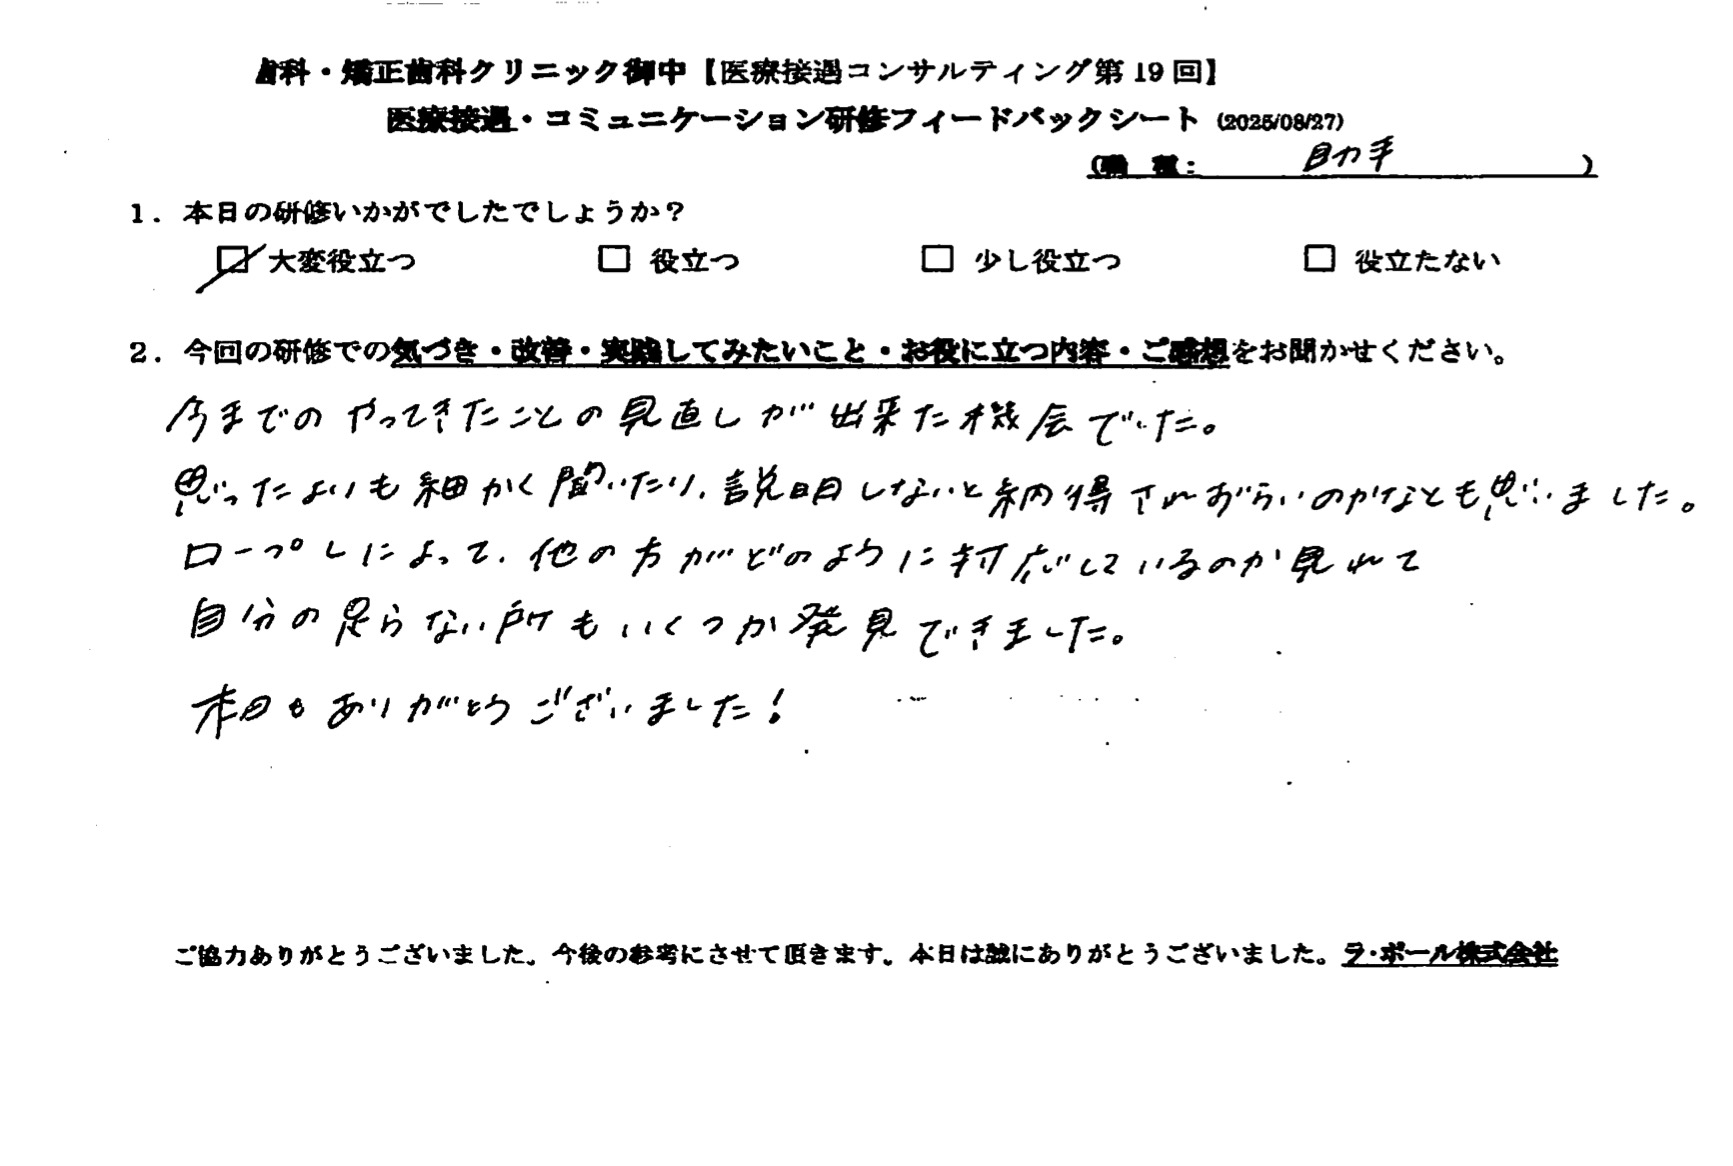 歯科・矯正歯科クリニック御中【医療接遇コンサルティング第19回】
医療接遇・コミュニケーション研修フィードバックシート (2025/08/27)
(職 種: 助手 )
1. 本日の研修いかがでしたでしょうか？
☑ 大変役立つ □ 役立つ □ 少し役立つ □ 役立たない
2. 今回の研修での気づき・改善・実践してみたいこと・お役に立つ内容・ご感想をお聞かせください。
今までのやってきたことの見直しが出来た機会でした。
思ったよりも細かく聞いたり、説明しないと納得されずらいのかなとも思いました。
ロープレによって、他の方がどのように対応しているのか見れて
自分の足らない所もいくつか発見できました。
本日もありがとうございました！
ご協力ありがとうございました。今後の参考にさせて頂きます。本日は誠にありがとうございました。ラ・ポール株式会社